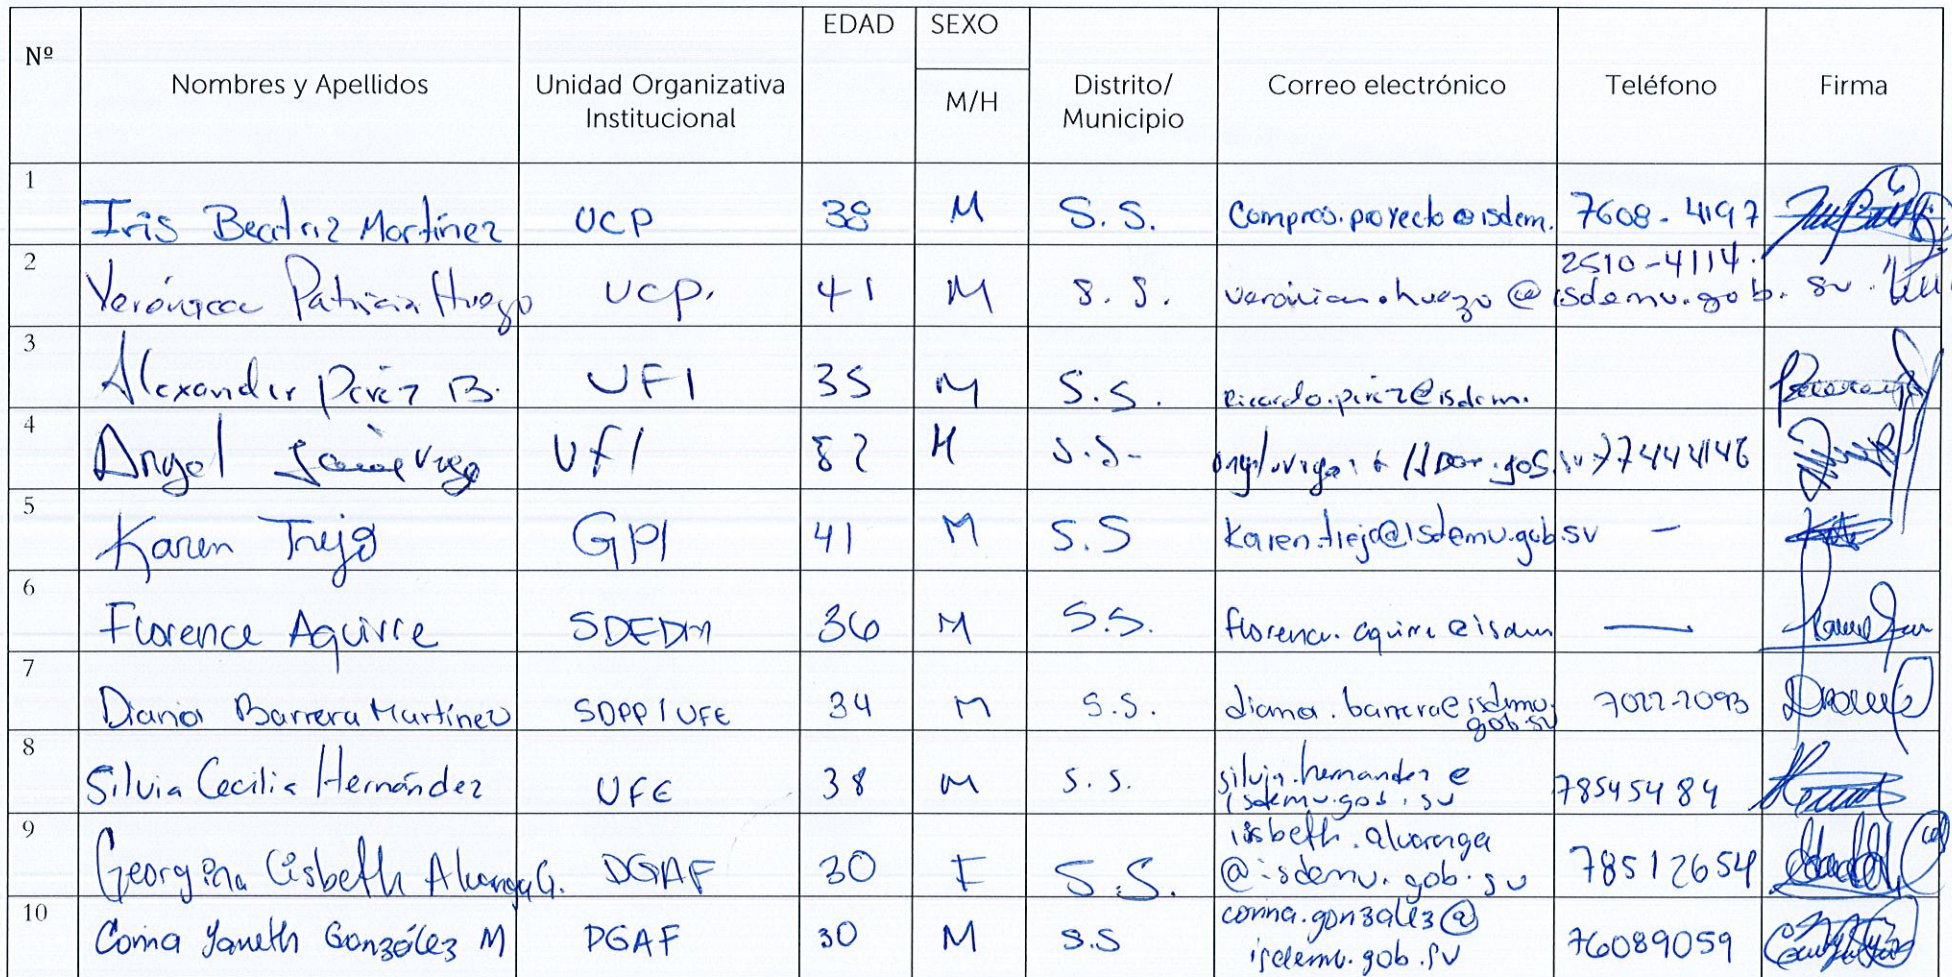 Nº Nombres y Apellidos Unidad Organizativa Institucional EDAD SEXO M/H Distrito/ Municipio Correo electrónico Teléfono Firma
1 Iris Beatriz Martínez UCP 38 M S.S. Compras.proyecto@isdem. 7608-4197
2 Verónica Patricia Huezo UCP. 41 M S.S. veronica.huezo@isdemu.gob.sv 2510-4114.
3 Alexander Pérez B. UFI 35 M S.S. ricardo.perez@isdem.
4 Angel UFI M S.S- 77444146
5 Karen Trejo GPI 41 M S.S Karen.trejo@isdemu.gob.sv —
6 Florence Aguirre SDEDM 36 M S.S. florence.aguirre@isdem —
7 Diana Barrera Martínez SDPP/UFE 34 M S.S. diana.barrera@isdemu.
gob.sv 7022-2093
8 Silvia Cecilia Hernández UFE 38 M S.S. silvia.hernandez@
isdemu.gob.sv 78545484
9 Georgina Lisbeth Alvarenga G. DGAF 30 F S.S. lisbeth.alvarenga
@isdemu.gob.sv 78512654
10 Corina Yaneth González M DGAF 30 M S.S corina.gonzalez@
isdemu.gob.sv 76089059